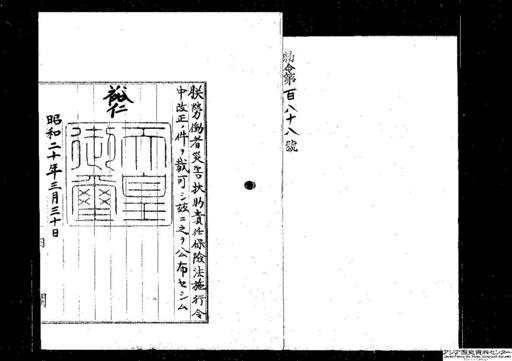 勅令第百八十八號
朕勞働者災害扶助責任保險法施行令
中改正ノ件ヲ裁可シ茲ニ之ヲ公布セシム
裕仁
天皇御璽
昭和二十年三月三十日
アジア歴史資料センター